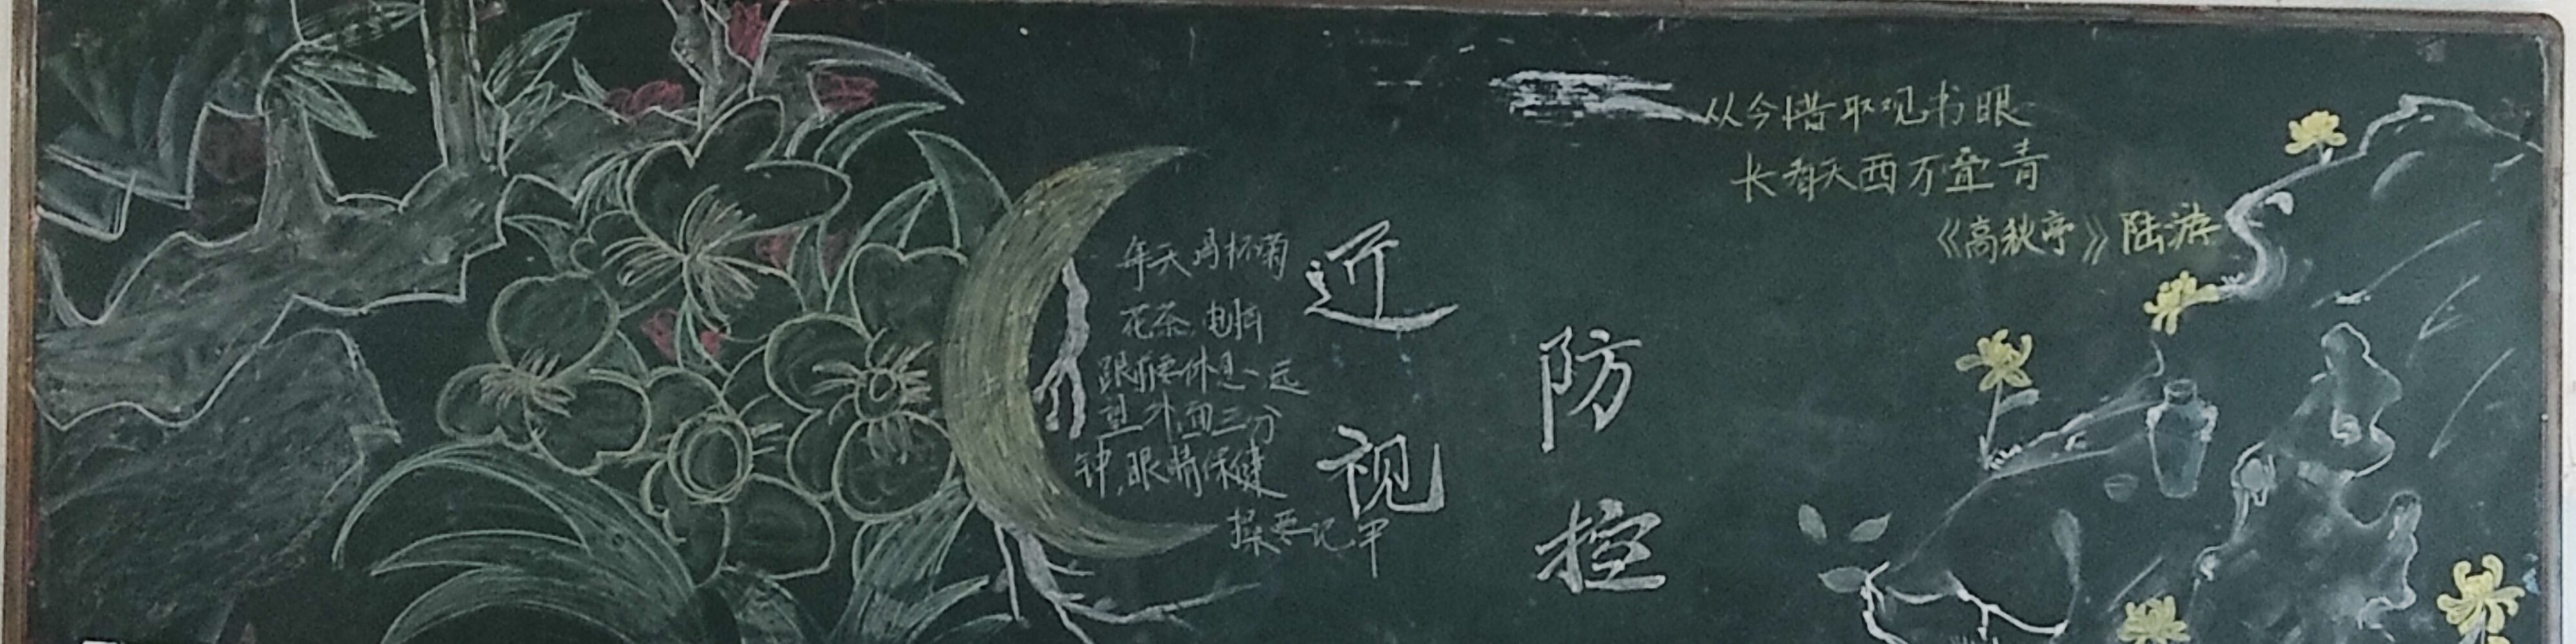 每天喝杯菊
花茶,电脑
跟前要休息、远
望外面三分
钟,眼睛保健
操要记牢
近视
防控
从今惜取观书眼
长看天西万叠青
《高秋亭》陆游